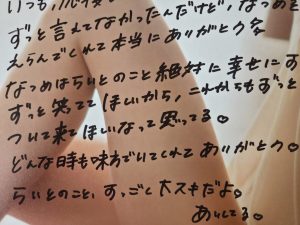 いつも
ずっと言えてなかったんだけど、なつめを
えらんでくれて本当にありがとう
なつめはらいとのこと絶対に幸せにす
ずっと笑ってほしいから、これからもずっと
ついて来てほしいなって思ってる。
どんな時も味方でいてくれてありがとう。
らいとのこと、すっごく大スキだよ。
あいしてる。